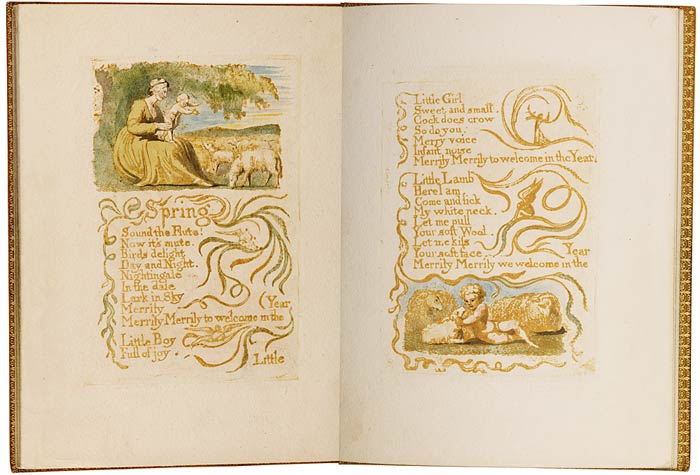 Spring
Sound the Flute!
Now it's mute.
Birds delight
Day and Night.
Nightingale
In the dale
Lark in Sky
Merrily
Merrily Merrily to welcome in the (Year
Little Boy
Full of joy.
Little
Little Girl
Sweet and small.
Cock does crow
So do you.
Merry voice
Infant noise
Merrily Merrily to welcome in the Year.
Little Lamb
Here I am.
Come and lick
My white neck.
Let me pull
Your soft Wool.
Let me kiss
Your soft face.
Merrily Merrily we welcome in the Year